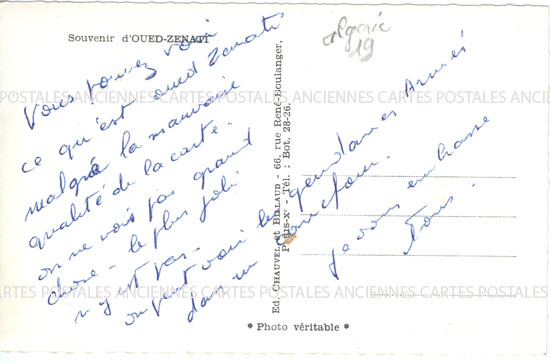 Souvenir d'OUED-ZENATI
algerie
19
Vous pouvez voir
ce qu'est oued Zenati
malgré la mauvaise
qualité de la carte.
on ne vois pas grand
chose - le plus joli
n'y est pas -
on peut voir les gendarmes Armés
dans un carrefour.
je vous embrasse
tous.
Ed. CHAUVEL et BILLAUD - 66, rue René-Boulanger,
PARIS-Xe - Tél. : Bot. 28-26.
* Photo véritable *
POSTALES ANCIENNES CARTES POSTALES ANCIENNES CARTES POSTALES ANCIENNES
CARTES POSTALES ANCIENNES CARTES POSTALES ANCIENNES CARTES POSTALES